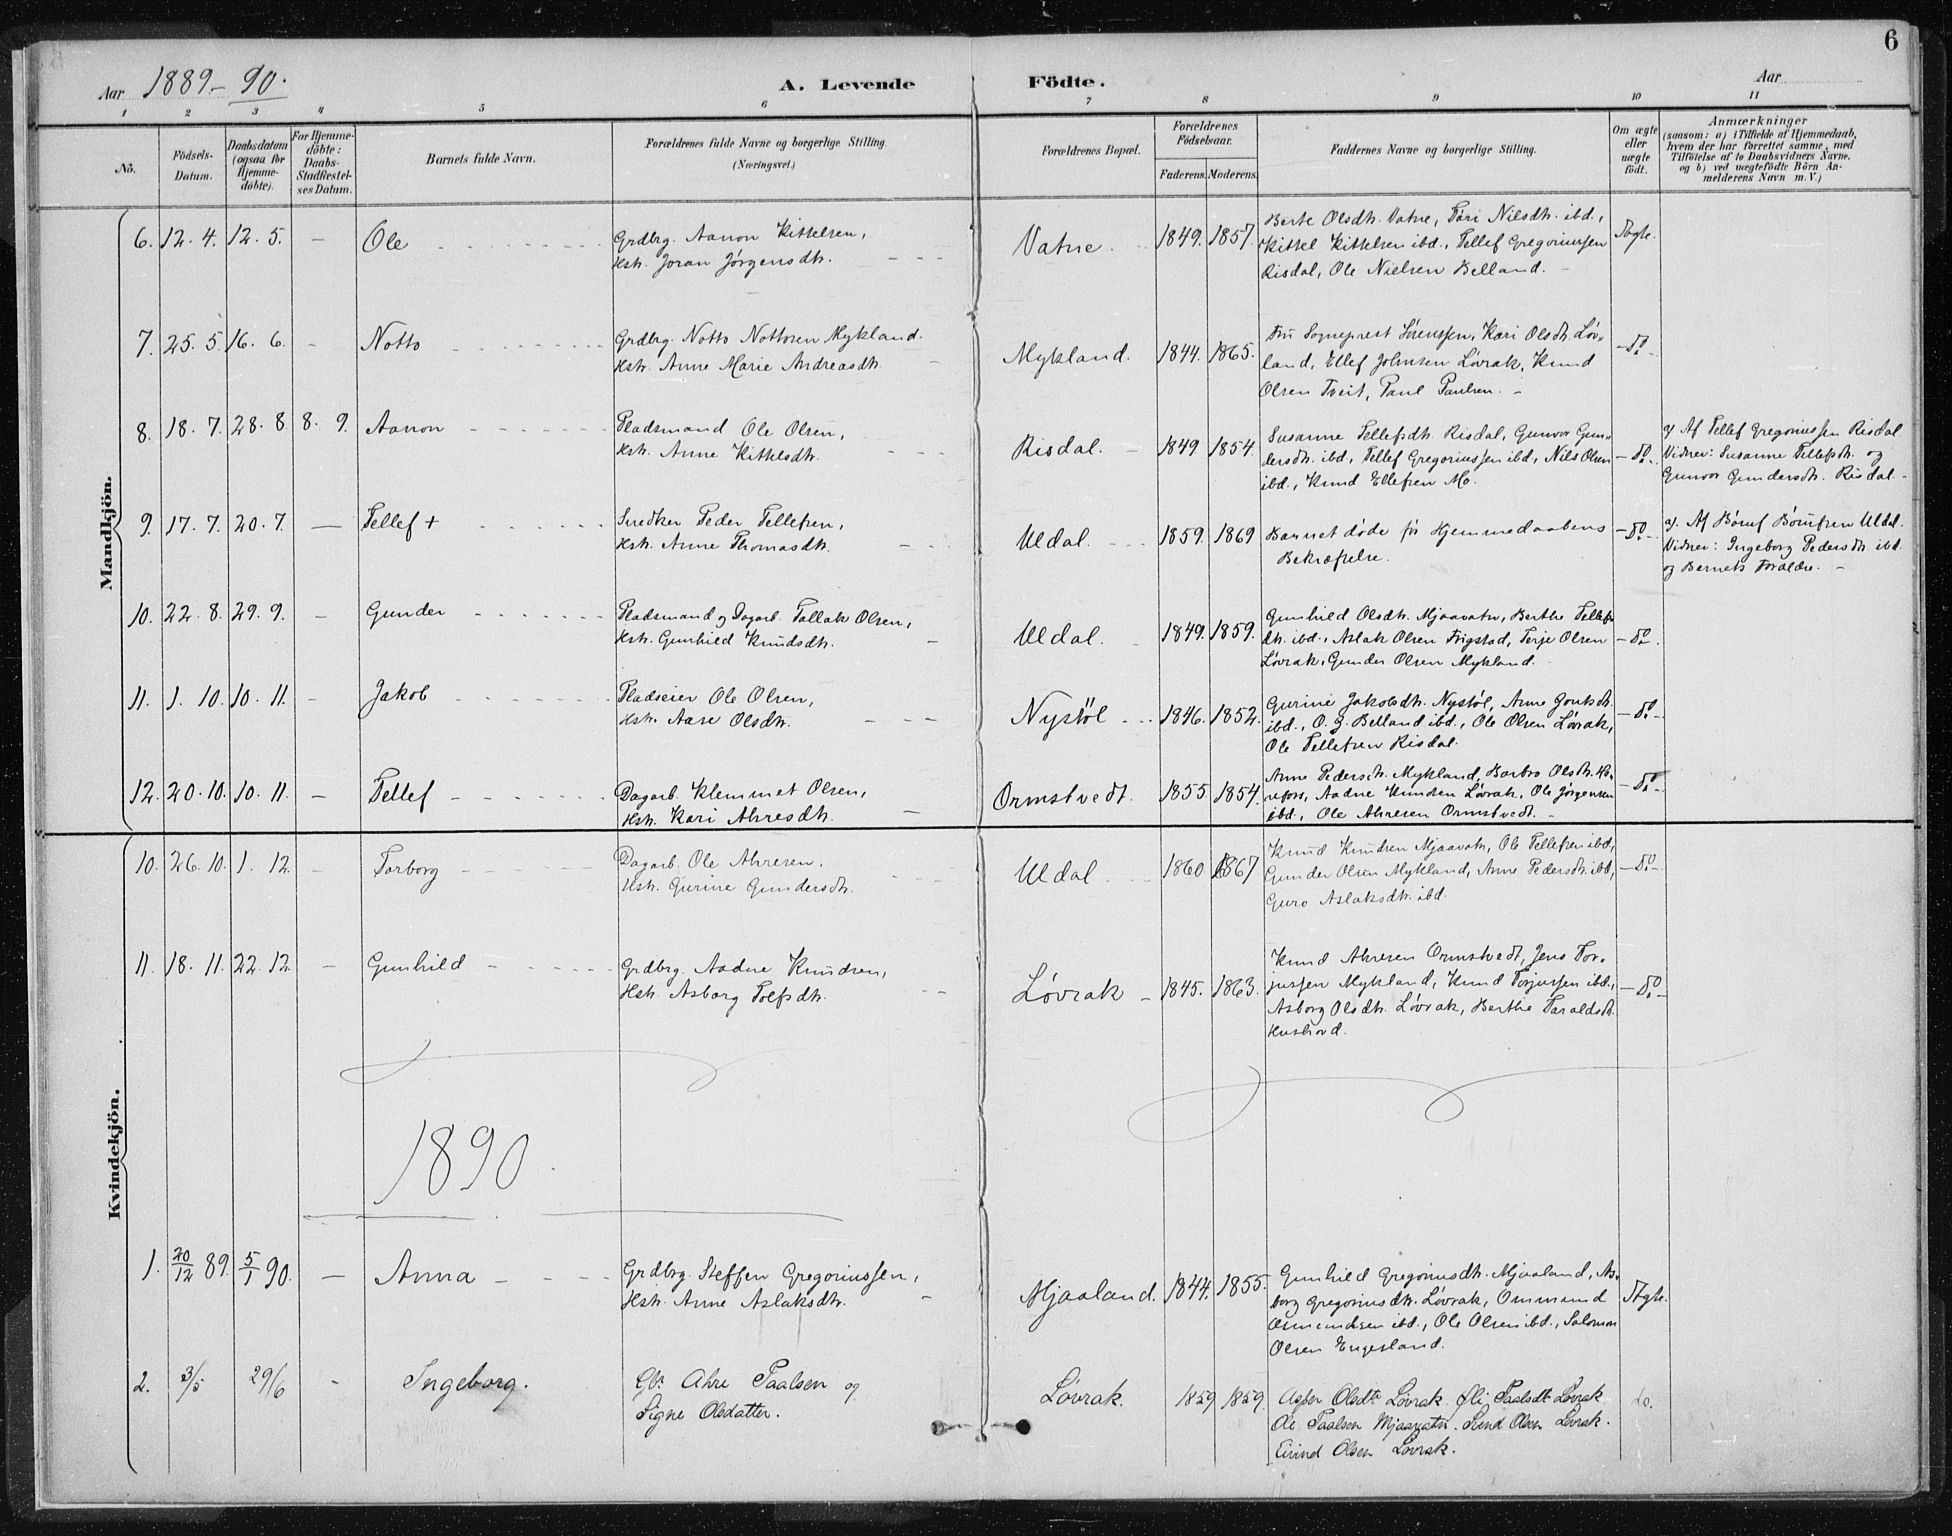 6
Aar 1889-90.
A. Levende Födte.
Aar
1 2 3 4 5 6 7 8 9 10 11
No.
Födsels-Datum.
Daabsdatum (ogsaa for Hjemme-döbte).
For Hjemme-döbte: Daabs-Stadfæstel-ses Datum.
Barnets fulde Navn.
Forældrenes fulde Navne og borgerlige Stilling.
(Næringsvei.)
Forældrenes Bopæl.
Forældrenes Födselsaar.
Faderens. Moderens.
Faddernes Navne og borgerlige Stilling.
Om ægte eller uægte födt.
Anmærkninger
(saasom: a) i Tilfælde af Hjemmedaab, hvem der har forrettet samme, med Tilföielse af to Daabsvidners Navne, og b) ved uægtefödte Börn An-melderens Navn m. V.)
Mandkjön.
6. 12. 4. 12. 5. - Ole
Grdbrg. Aanon Kittelsen,
Hstr. Joran Jørgensdtr.
Vatne. 1849. 1857.
Berte Olsdtr. Vatne, Tari Nilsdtr. ibd.,
Kittel Kittelsen ibd., Tellef Gregoriussen
Risdal, Ole Nielsen Belland. -
Ægte.
7. 25. 5. 16. 6. - Notto
Grdbrg. Notto Nottosen Mykland.
Hstr. Anne Marie Andreasdtr.
Mykland. 1844. 1865.
Fru Sogneprest Sørenssen, Kari Olsdtr. Løv-
land, Ellef Johnsen Løvrak, Knud
Olsen Tveit, Paul Paulsen. -
- Do -
8. 18. 7. 28. 8. 8. 9. Aanon
Pladsmand Ole Olsen,
Hstr. Anne Kittelsdtr.
Risdal. 1849 1854.
Susanne Tellefsdtr. Risdal, Gunvor Gun-
dersdtr. ibd., Tellef Gregoriussen ibd., Nils Olsen
ibd., Knud Ellefsen Mo.
- Do -
a) Af Tellef Gregoriussen Risdal.
Vidner: Susanne Tellefsdtr. og
Gunvor Gundersdtr. Risdal. -
9. 17. 7. 20. 7. - Tellef +
Snedker Peder Tellefsen,
Hstr. Anne Thomasdtr.
Uldal. 1859. 1869
Barnet døde før Hjemmedaabens
Bekræftelse.
- Do -
a). Af Børuf Børufsen Uldal.
Vidner: Ingeborg Pedersdtr. ibd.
og Barnets Forældre. -
10. 22. 8. 29. 9. - Gunder
Pladsmand og Dagarb. Tallak Olsen,
Hstr. Gunhild Knudsdtr.
Uldal. 1849. 1859.
Gunhild Olsdtr. Mjaavatn, Berthe Tellefs-
dtr. ibd., Aslak Olsen Frigstad, Terje Olsen
Løvrak, Gunder Olsen Mykland.
- Do -
11. 1. 10. 10. 11. - Jakob
Pladseier Ole Olsen,
Hstr. Aase Olsdtr.
Nystøl 1846. 1852.
Gurine Jakobsdtr. Nystøl, Anne
ibd., O. G. Belland ibd., Ole Olsen Løvrak,
Ole Tellefsen Risdal.
- Do -
12. 20. 10. 10. 11. - Tellef
Dagarb. Klemmet Olsen,
Hstr. Kari Ahresdtr.
Ormstvedt. 1855 1854.
Anne Pedersdtr. Mykland, Barbro Olsdtr.
Aadne Knudsen Løvrak, Ole Jørgensen
ibd., Ole Ahresen Ormstvedt. -
- Do -
Kvindekjön.
10. 26. 10. 1. 12. - Torborg
Dagarb. Ole Ahresen,
Hstr. Gurine Gundersdtr.
Uldal 1860 1867
Knud Knudsen Mjaavatn, Ole Tellefsen ibd.,
Gunder Olsen Mykland, Anne Pedersdtr. ibd.,
Guro Aslaksdtr. ibd.
- Do -
11. 18. 11. 22. 12. - Gunhild
Grdbrg. Aadne Knudsen,
Hstr. Asborg Tolfsdtr.
Løvrak 1845. 1863.
Knud Ahresen Ormstvedt, Jens Tor-
jussen Mykland, Knud Torjussen ibd.,
Asborg Olsdtr. Løvrak, Berthe Taraldsdtr.
- Do -
1890.
1. 20/12 89. 5/1 90. - Anna
Grdbrg. Steffen Gregoriussen,
Hstr. Anne Aslaksdtr.
Mjaaland. 1844. 1855.
Gunhild Gregoriusdtr. Mjaaland, As-
borg Gregoriusdtr. Løvrak, Ommund
Osmundsen ibd., Ole Olsen ibd., Salomon
Olsen Engesland.
Ægte.
2. 3/5 29/6 - Ingeborg.
Gbr. Ahre Paalsen og
Signe Olsdatter.
Løvrak. 1859 1859.
Olsdtr Løvrak. Øli Paalsdtr Løvrak
Ole Paalsen Mjaavatn. Svend Olsen Løvrak.
Eivind Olsen Løvrak.
do.